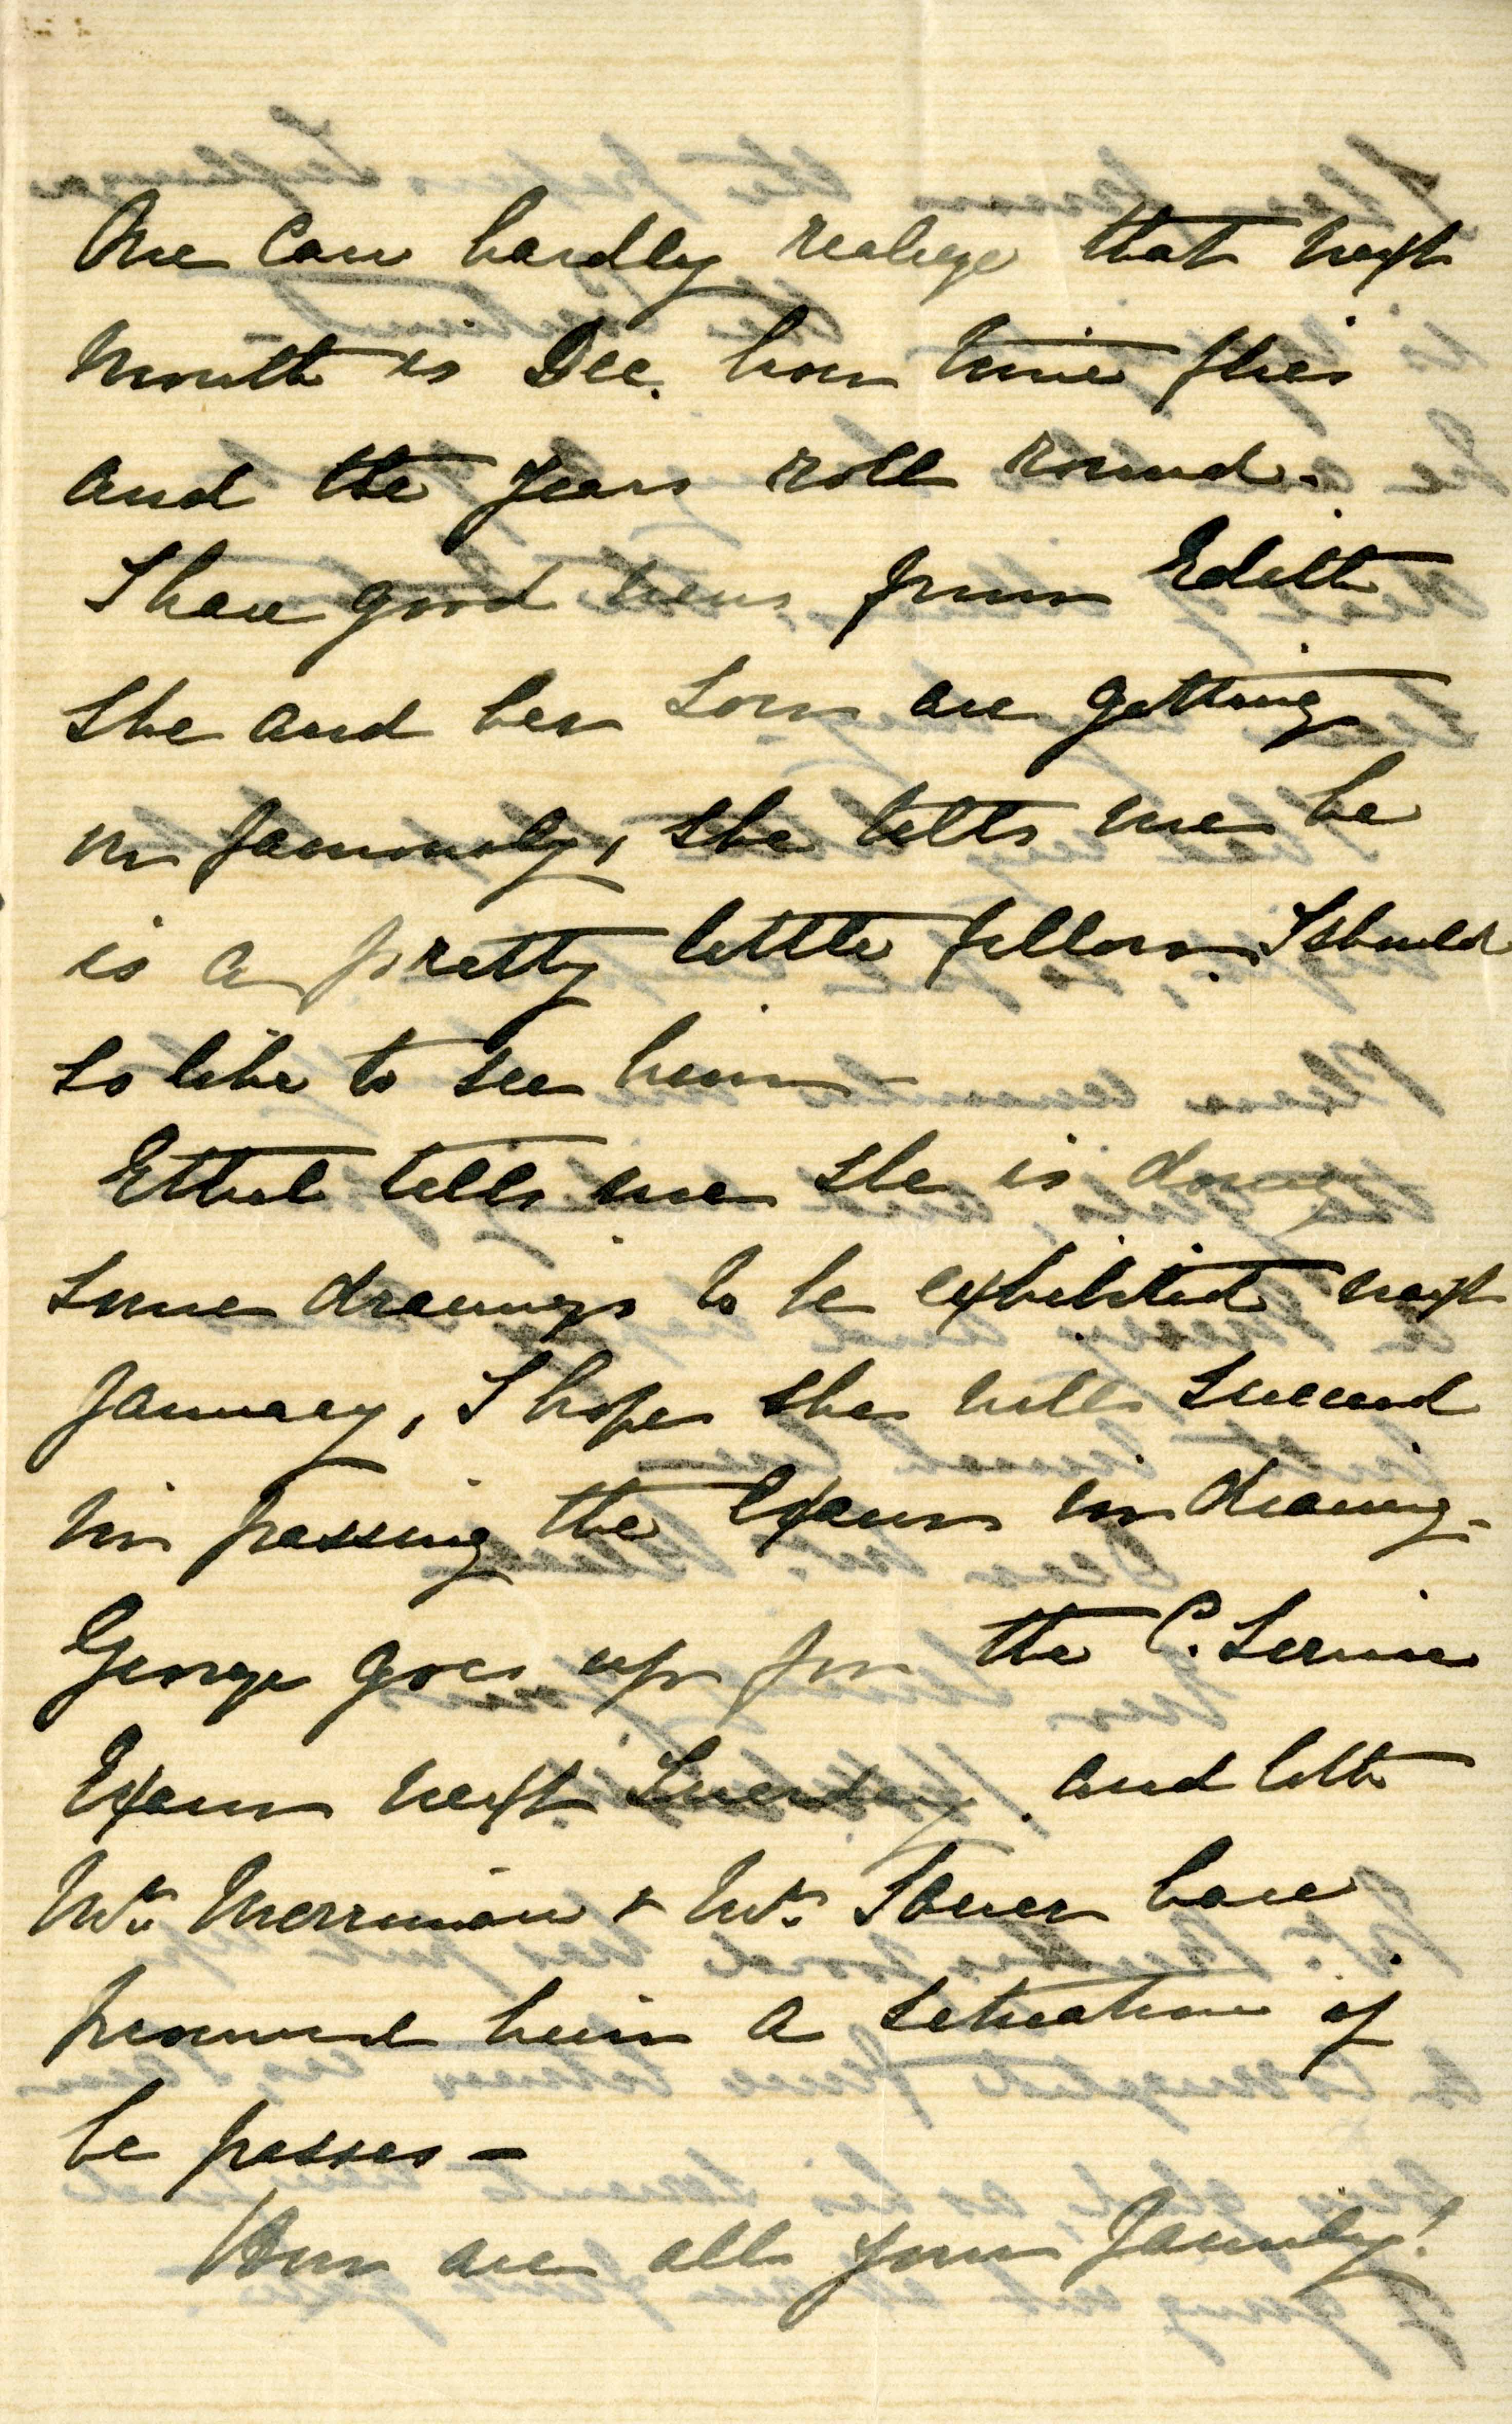 One can hardly realize that next
month is Dec. how time flies
and the years roll round.
I have good news from Edith
She and her Son are getting
on famously, she tells me he
is a pretty little fellow. I should
so like to see him
Ethel tells me she is doing
some drawings to be exhibited next
January, I hope she will succeed
in passing the Exam in drawing -
George goes up for the C. Service
Exam next Tuesday. and both
Mr. Merriman & Mr. Tower have
promised him a situation if
he passes -
How are all your Family!